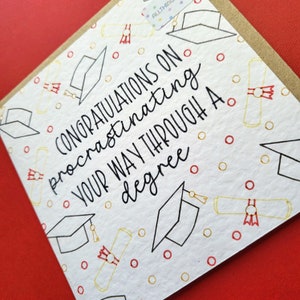 CONGRATULATIONS ON
procrastinating
YOUR WAY THROUGH A
degree